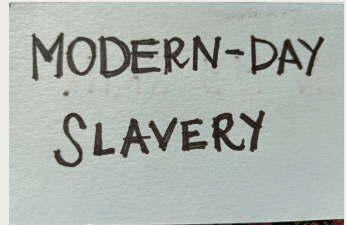 MODERN-DAY
SLAVERY